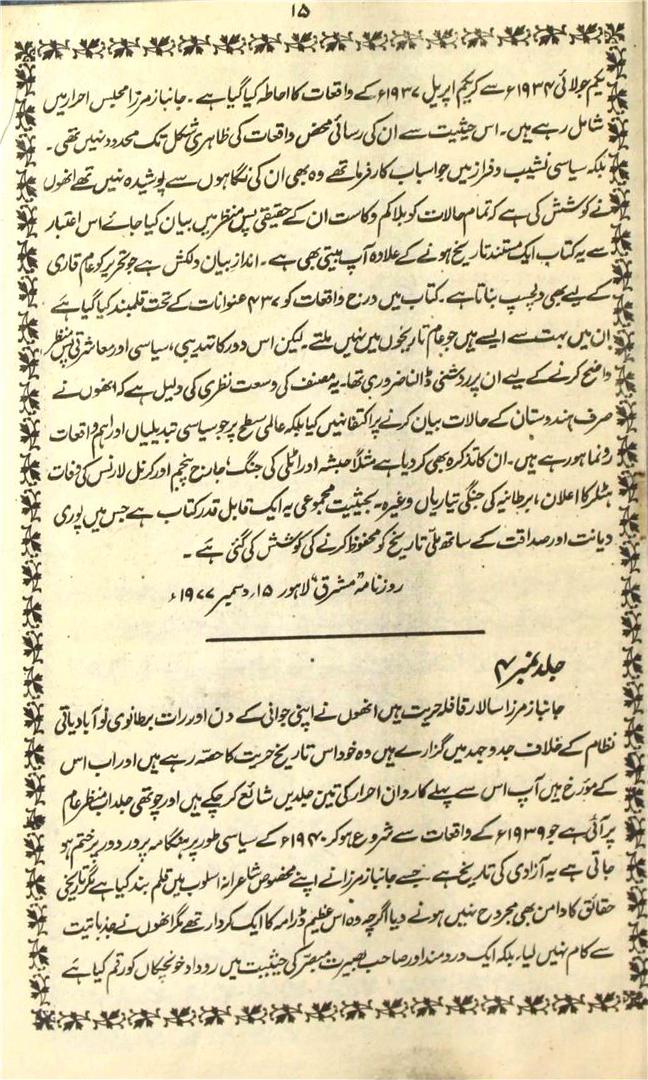 ۱۵
یکم جولائی ۱۹۳۴ء سے کر یکم اپریل ۱۹۳۷ء کے واقعات کا احاطہ کیا گیا ہے۔ جانباز مرزا مجلس احرار میں
شامل رہے ہیں۔ اس حیثیت سے ان کی رسائی محض واقعات کی ظاہری شکل تک محدود نہیں تھی۔
بلکہ سیاسی نشیب و فراز میں جو اسباب کارفرما تھے وہ بھی ان کی نگاہوں سے پوشیدہ نہیں تھے انھوں
نے کوشش کی ہے کہ تمام حالات کو بلا کم و کاست ان کے حقیقی پس منظر میں بیان کیا جائے اس اعتبار
سے یہ کتاب ایک مستند تاریخ ہونے کے علاوہ آپ بیتی بھی ہے۔ انداز بیان دلکش ہے جو تحریر کو عام قاری
کے لیے بھی دلچسپ بناتا ہے۔ کتاب میں درج واقعات کو ۴۳۷ عنوانات کے تحت قلمبند کیا گیا ہے
ان میں بہت سے ایسے ہیں جو عام تاریخوں میں نہیں ملتے۔ لیکن اس دور کا تہذیبی، سیاسی اور معاشرتی پس منظر
واضح کرنے کے لیے ان پر روشنی ڈالنا ضروری تھا۔ یہ مصنف کی وسعت نظری کی دلیل ہے کہ انھوں نے
صرف ہندوستان کے حالات بیان کرنے پر اکتفا نہیں کیا بلکہ عالمی سطح پر جو سیاسی تبدیلیاں اور اہم واقعات
رونما ہو رہے ہیں۔ ان کا تذکرہ بھی کر دیا ہے مثلاً حبشہ اور اٹلی کی جنگ، جارج پنجم اور کرنل لارنس کی وفات
ہٹلر کا اعلان، برطانیہ کی جنگی تیاریاں وغیرہ۔ بحیثیت مجموعی یہ ایک قابل قدر کتاب ہے جس میں پوری
دیانت اور صداقت کے ساتھ ملّی تاریخ کو محفوظ کرنے کی کوشش کی گئی ہے۔
روزنامہ "مشرق" لاہور ۱۵، دسمبر ۱۹۷۷ء
جلد نمبر ۴
جانباز مرزا سالار قافلہ حریت ہیں انھوں نے اپنی جوانی کے دن اور رات برطانوی نوآبادیاتی
نظام کے خلاف جدوجہد میں گزارے ہیں وہ خود اس تاریخ حریت کا حصہ رہے ہیں اور اب اس
کے مؤرخ ہیں آپ اس سے پہلے کاروان احرار کی تین جلدیں شائع کر چکے ہیں اور چوتھی جلد اب منظر عام
پر آئی ہے جو ۱۹۳۹ء کے واقعات سے شروع ہو کر ۱۹۴۰ء کے سیاسی طور پر ہنگامہ پرور دور پر ختم ہو
جاتی ہے یہ آزادی کی تاریخ ہے جسے جانباز مرزا نے اپنے مخصوص شاعرانہ اسلوب میں قلم بند کیا ہے مگر تاریخی
حقائق کا دامن بھی مجروح نہیں ہونے دیا اگرچہ وہ اس عظیم ڈرامہ کا ایک کردار تھے مگر انھوں نے جذباتیت
سے کام نہیں لیا۔ بلکہ ایک دردمند اور صاحب بصیرت مبصر کی حیثیت میں روداد خونچکاں کو رقم کیا ہے